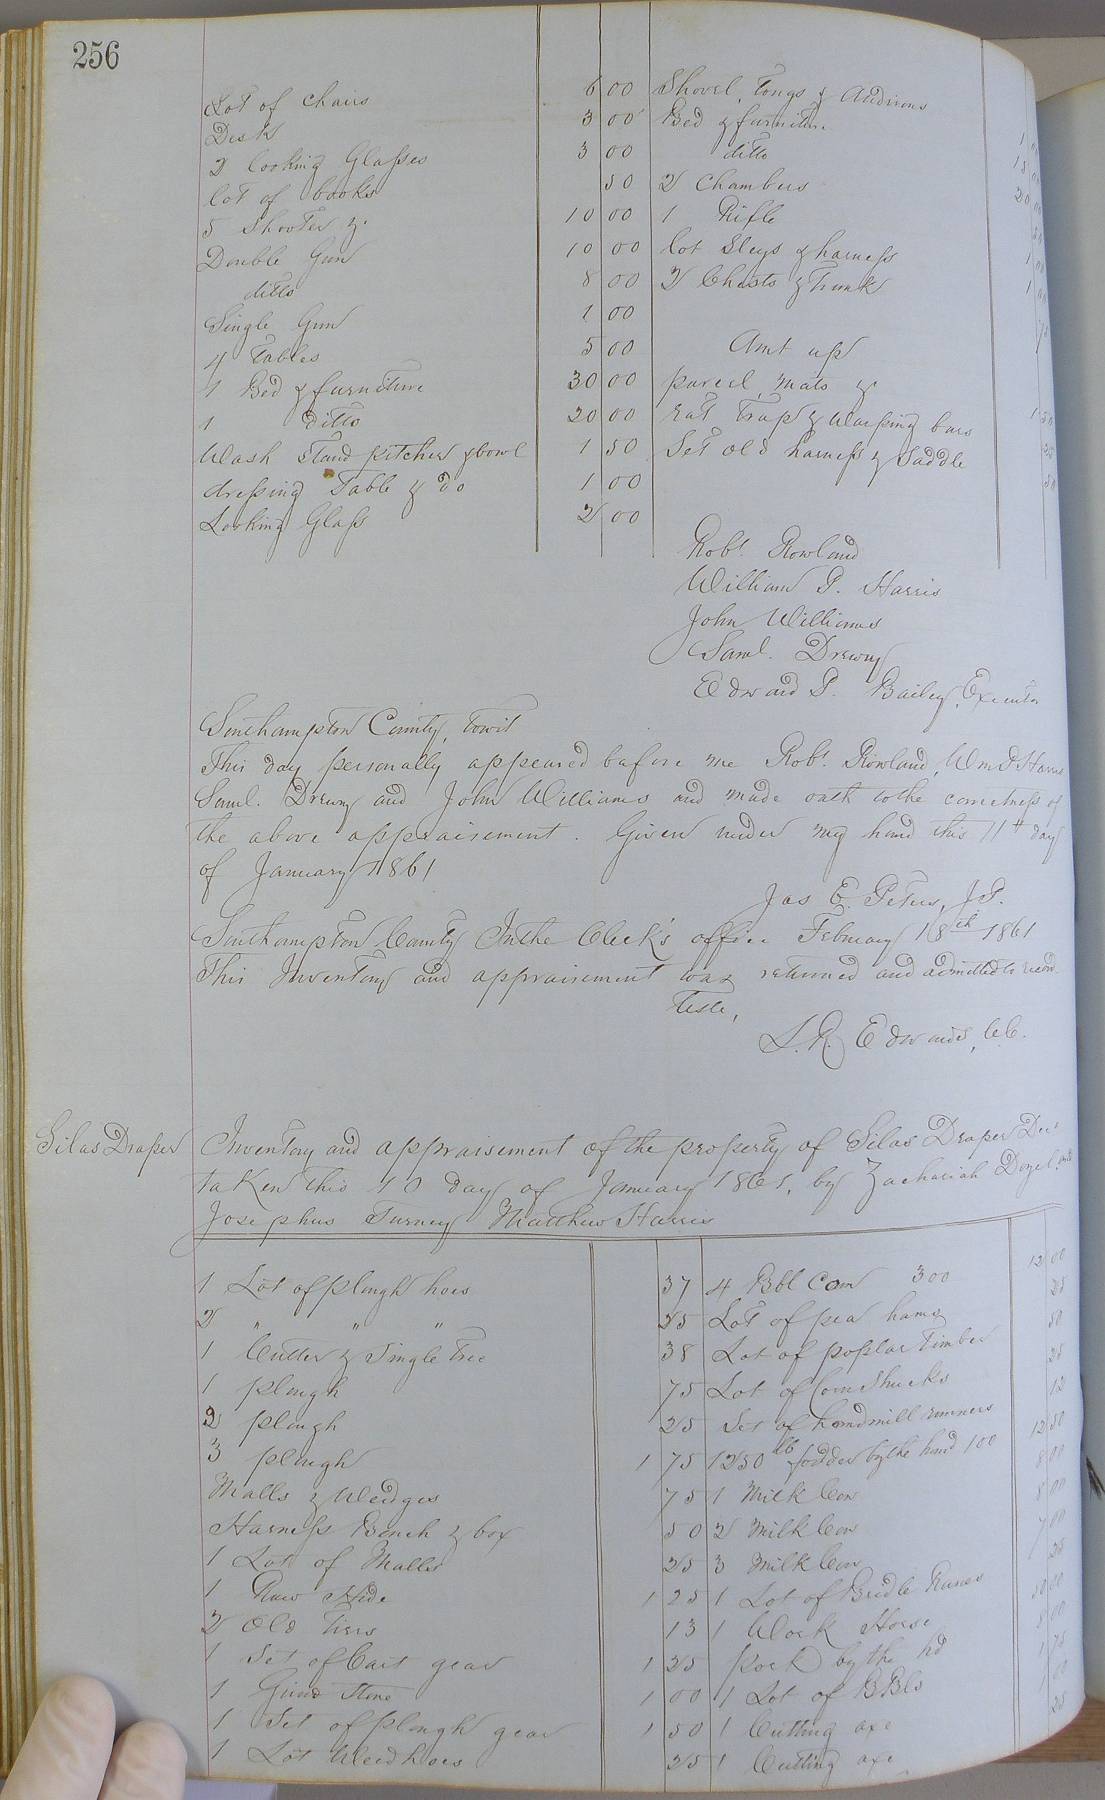 256
Lot of chairs 6 00 Shovel, Tongs & Andirons
Desk 3 00 Bed & furniture 1
2 Looking Glasses 3 00 ditto 15
lot of books 50 2 Chambers 20 00
5 Shooter &. 10 00 1 Rifle 50
Double Gun 10 00 lot Sleys & harness 1 00
ditto 8 00 2 Chests & Trunk 1 00
Single Gun 1 00
4 Tables 5 00 Amt up
1 Bed & furniture 30 00 parcel mats &
1 ditto 20 00 rat Trap & Warping bars 1 50
Wash Stand pitcher & bowl 1 50 Set old harness & Saddle 25
dressing Table & do 1 00 50
Looking Glass 2 00
Robt. Rowland
William P. Harris
John Williams
Saml. Drewry
Edward P. Bailey, Executor
Southampton County, towit
This day personally appeared before me Robt. Rowland, Wm P Harris
Saml. Drewry and John Williams and made oath to the correctness of
the above appraisement. Given under my hand this 11th day
of January 1861
Jas E. Peters, J.P.
Southampton County In the Clerk's office February 18th 1861
This Inventory and appraisement was returned and admitted to record
Teste,
L. R. Edwards, C.C.
Silas Draper Inventory and appraisement of the property of Silas Draper Dec
taken this 10 day of January 1861, by Zachariah
Josephus Turney Matthew Harris
1 Lot of plough hoes 37 4 Bbl Corn 300 12 00
2 " " " 25 Lot of pea hams 25
1 Cutter & Single Tree 38 Lot of poplar Timber 50
1 plough 75 Lot of Corn Shucks 25
2 plough 25 Set of handmill runners 12
3 plough 1 75 1250 lb fodder by the hund 100 12 50
Malls & Wedges 75 1 Milk Cow 8 00
Harness Bench & box 50 2 Milk Cow 8 00
1 Lot of Malls 25 3 Milk Cow 7 00
1 Raw Hide 1 25 1 Lot of Bridle 25
2 Old Tiers 13 1 Work Horse 50 00
1 Set of Cart gear 1 25 Pork by the hd 8 00
1 Grind Stone 1 00 1 Lot of BBls 1 75
1 Set of plough gear 1 50 1 Cutting axe 1 00
1 Lot Weed hoes 25 1 Cutting axe 25